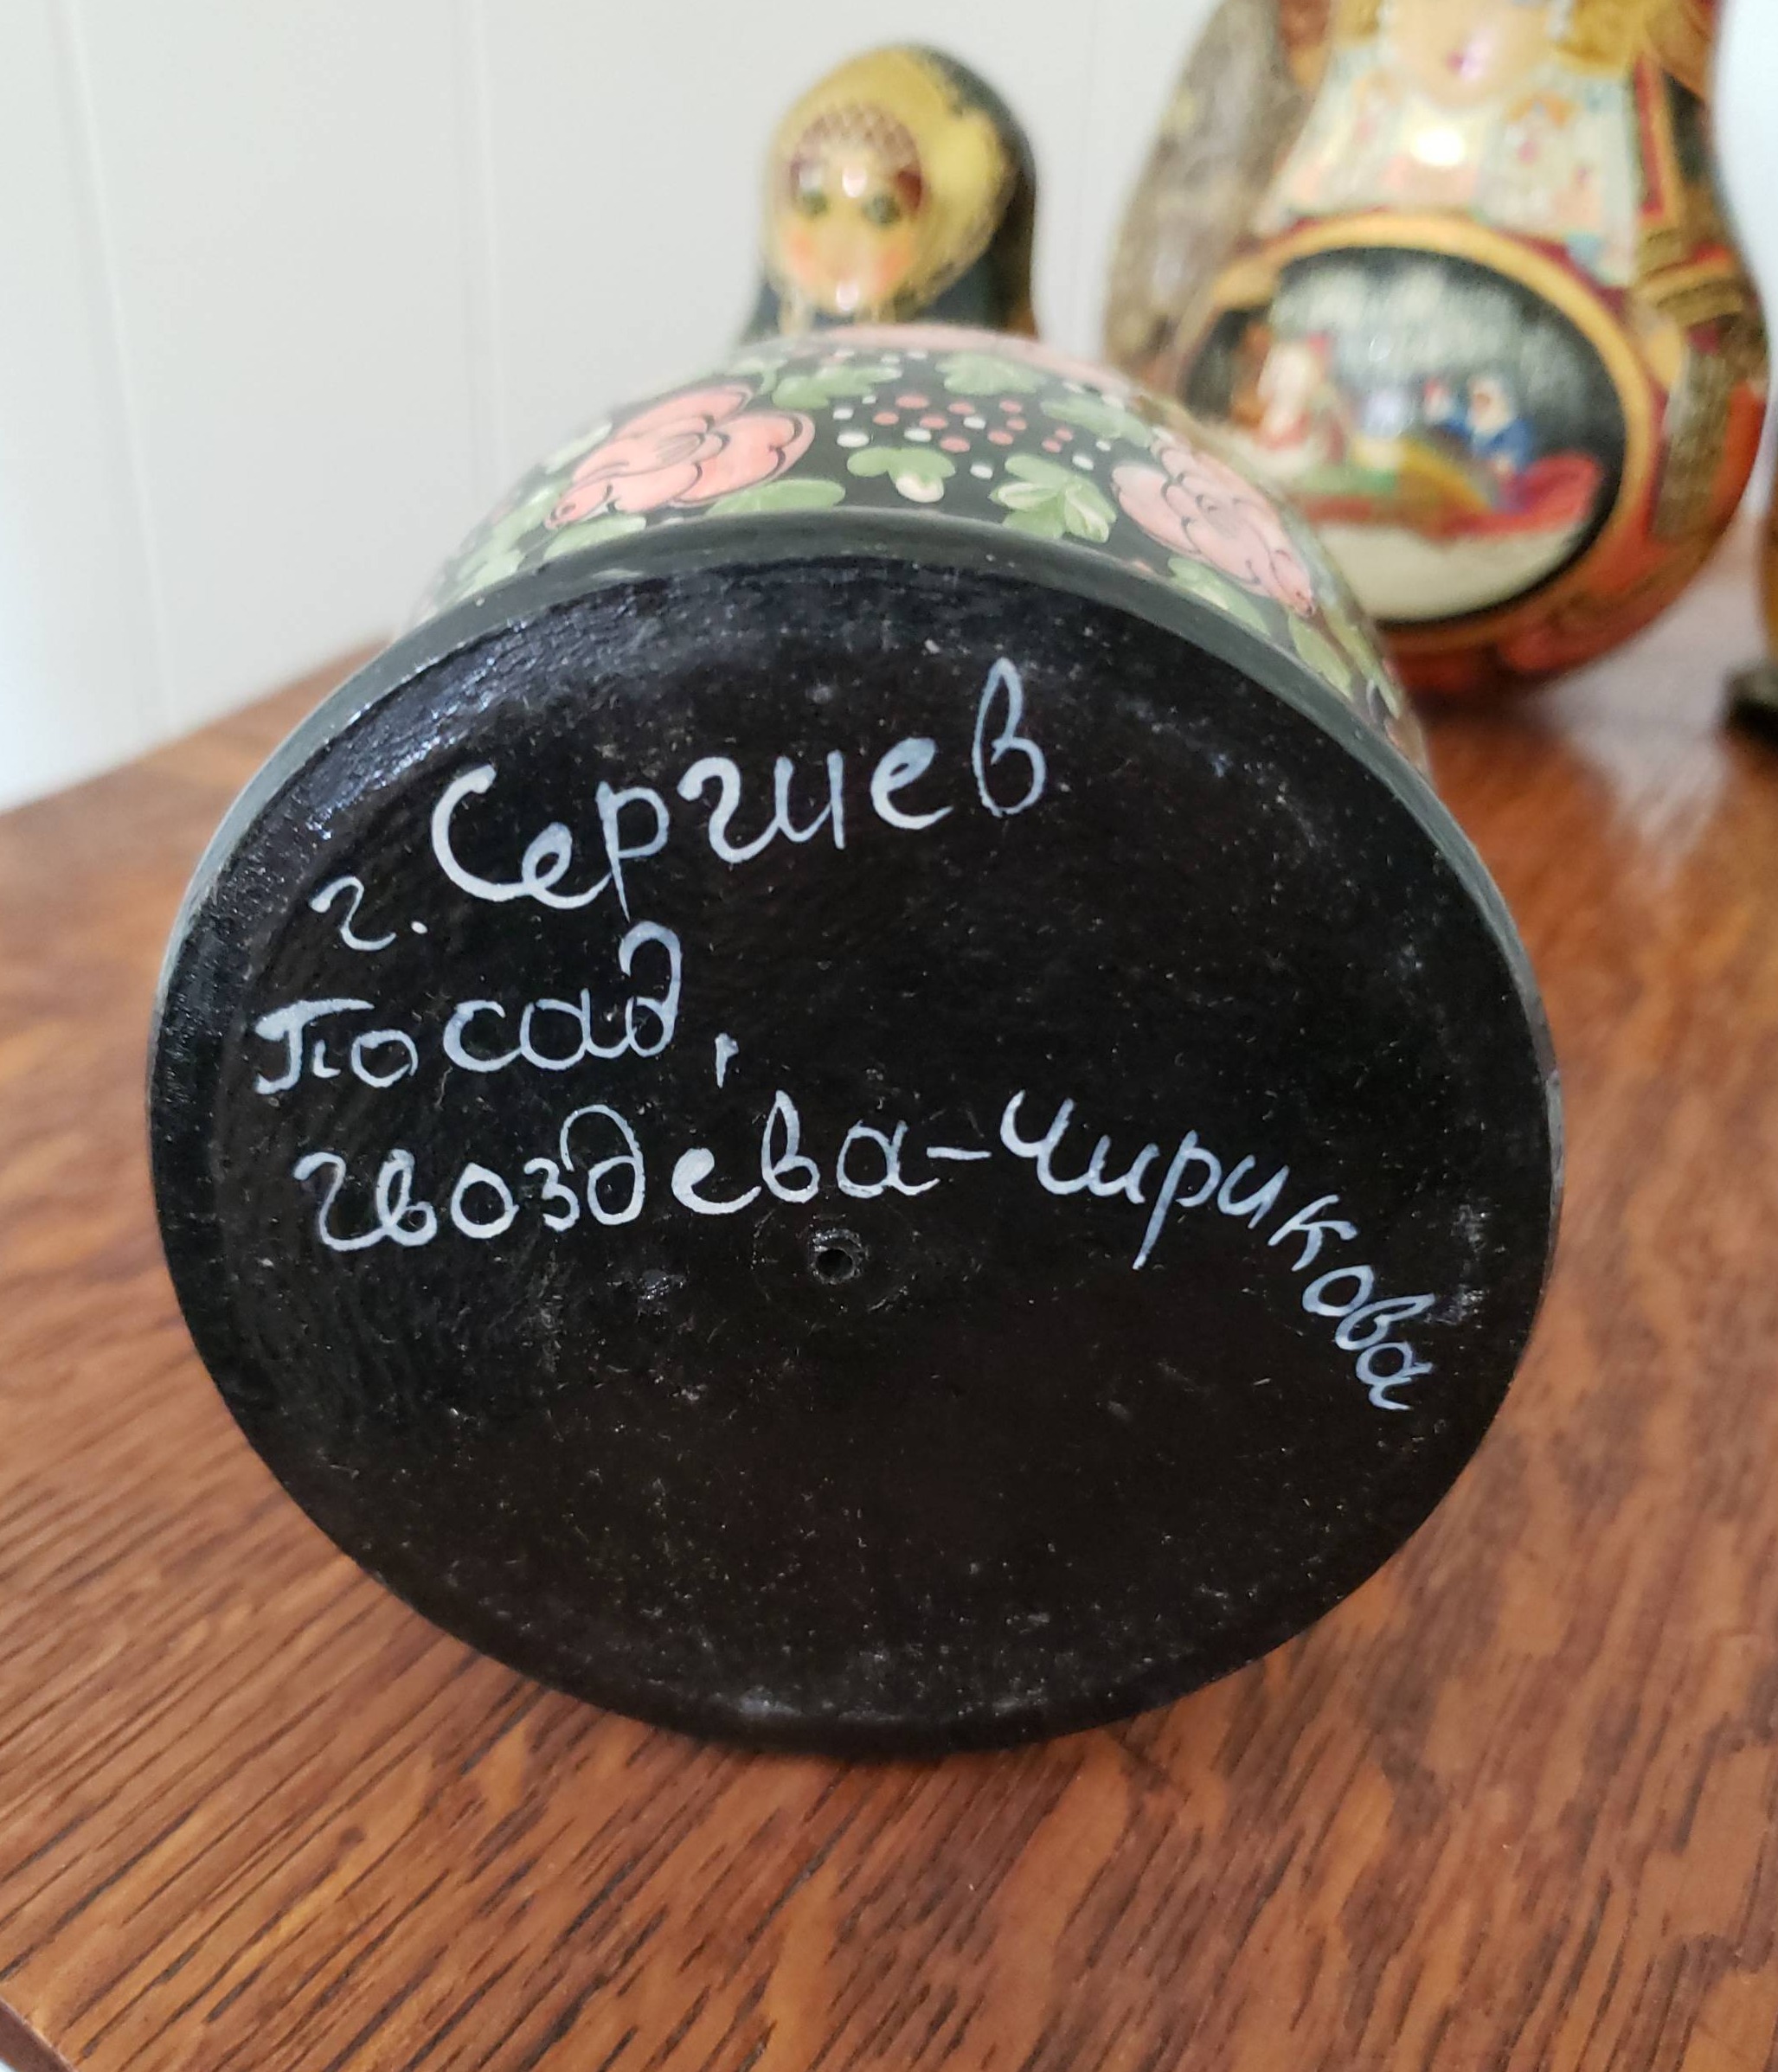 г. Сергиев
Посад,
гвоздева-Чирикова